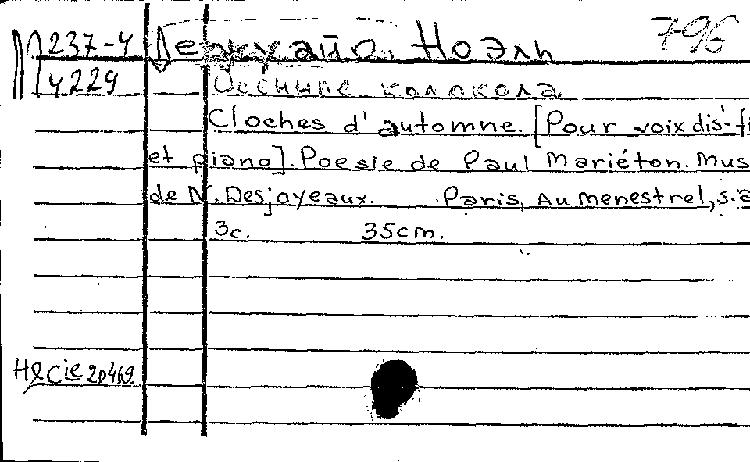 796
П 237-4 Дежуайо, Ноэль
4229 Осенние колокола
Cloches d'automne. [Pour voix dis-fi
et piano]. Poesie de Paul Mariéton. Mus
de N. Desjoyeaux. Paris, Au menestrel, s.a
3с. 35cm.
H&Cie 20469